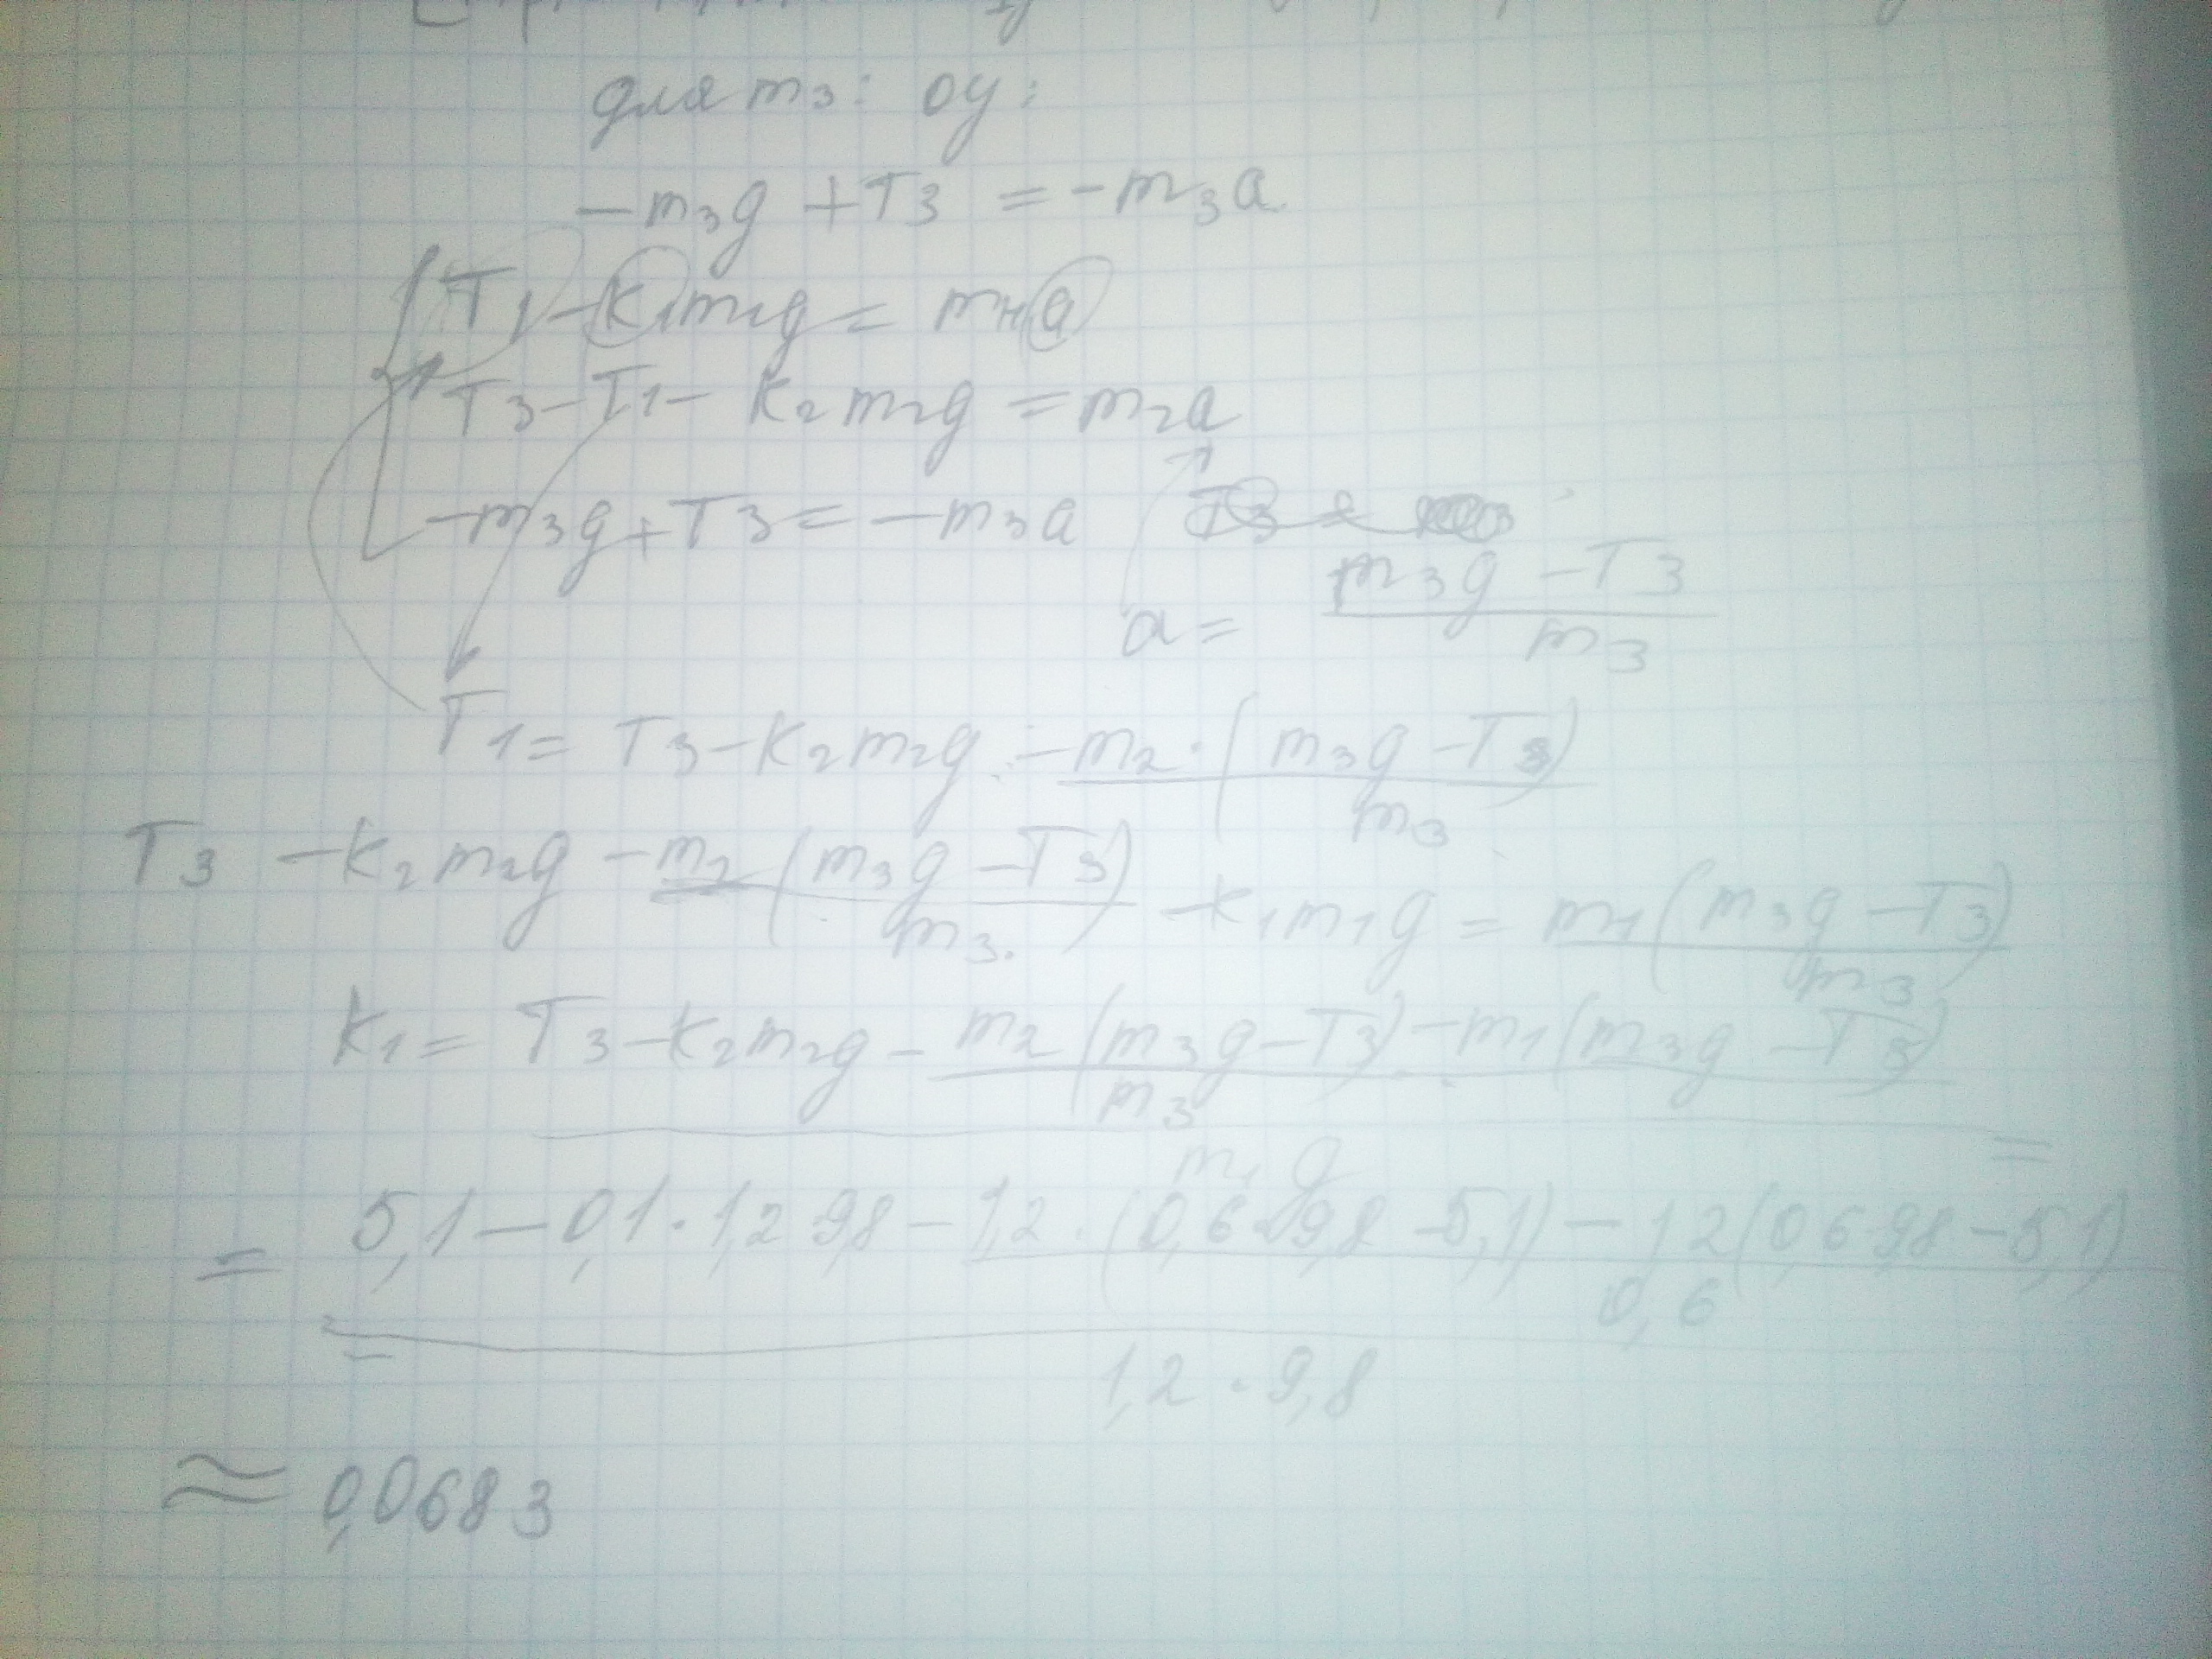 для m3: oy:
-m3g +T3 = -m3a
T1 - k1m1g = m1a
T3 - T1 - k2m2g = m2a
-m3g + T3 = -m3a
a = (m3g - T3)/m3
T1 = T3 - k2m2g - m2·(m3g - T3)/m3
T3 - k2m2g - m2(m3g - T3)/m3 - k1m1g = m1(m3g - T3)/m3
k1 = (T3 - k2m2g - (m2(m3g - T3) - m1(m3g - T3))/m3)/(m1g) =
= (5,1 - 0,1·1,2·9,8 - (1,2·(0,6·9,8 - 5,1) - 1,2(0,6·9,8 - 5,1))/0,6)/(1,2·9,8)
=
≈ 0,0683